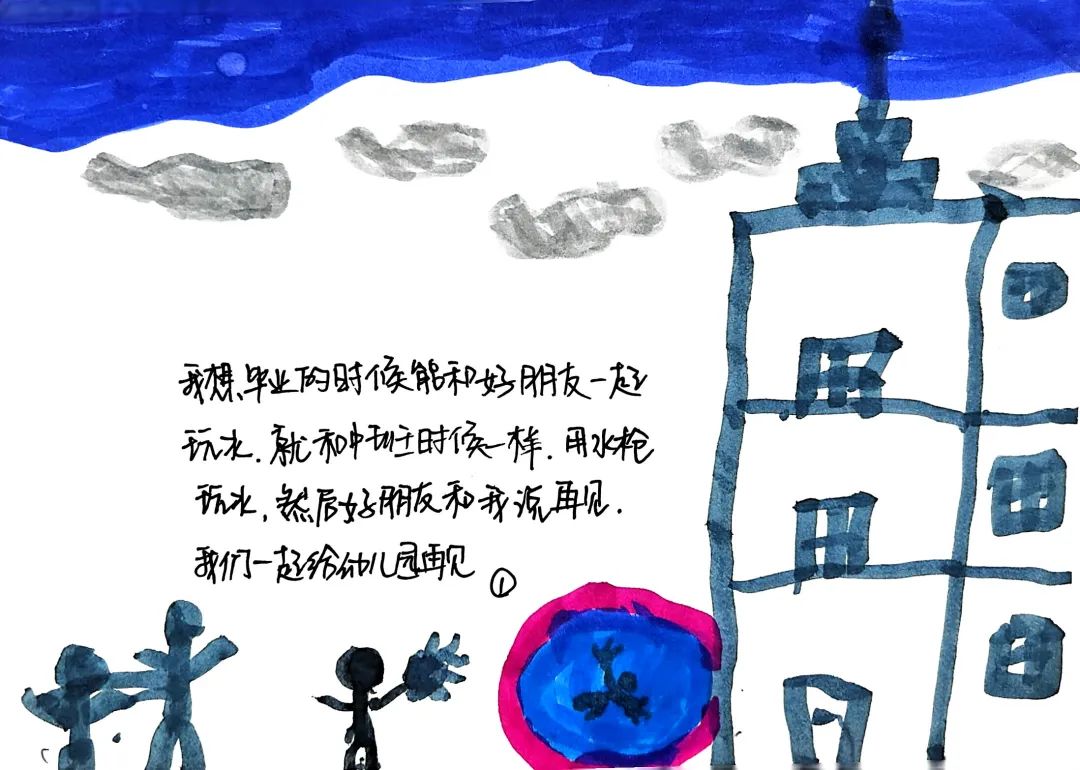 我想毕业的时候能和好朋友一起
玩水.就和中班时候一样.用水枪
玩水,然后好朋友和我说再见.
我们一起给幼儿园再见
①